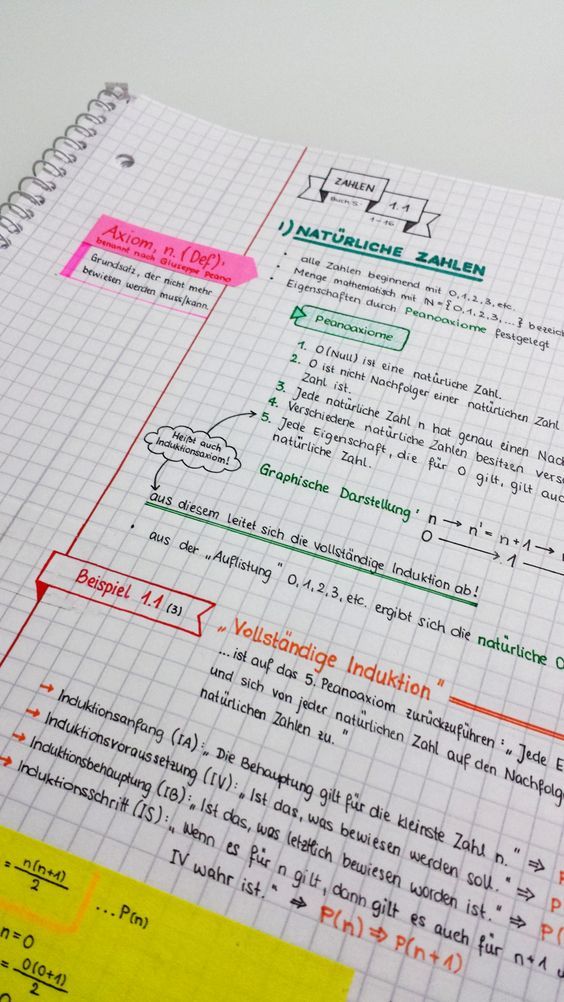 ZAHLEN
Buch S.
1.1
1-16
1) NATÜRLICHE ZAHLEN
Axiom, n. (Def):
benannt nach Giuseppe Peano
Grundsatz, der nicht mehr
bewiesen werden muss/kann.
• alle Zahlen beginnend mit 0,1,2,3, etc.
• Menge mathematisch mit ℕ = {0,1,2,3,...} bezeich
• Eigenschaften durch Peanoaxiome festgelegt
Peanoaxiome
1. 0 (Null) ist eine natürliche Zahl.
2. 0 ist nicht Nachfolger einer natürlichen Zahl
Zahl ist.
3. Jede natürliche Zahl n hat genau einen Nac
4. Verschiedene natürliche Zahlen besitzen vers
5. Jede Eigenschaft, die für 0 gilt, gilt auc
natürliche Zahl.
Heißt auch
Induktionsaxiom!
Graphische Darstellung: n → n' = n+1 →
0 → 1
aus diesem leitet sich die vollständige Induktion ab!
• aus der „Auflistung" 0,1,2,3, etc. ergibt sich die natürliche O
Beispiel 1.1 (3)
„Vollständige Induktion"
... ist auf das 5. Peanoaxiom zurückzuführen: „Jede E
und sich von jeder natürlichen Zahl auf den Nachfolge
natürlichen Zahlen zu."
→ Induktionsanfang (IA): „Die Behauptung gilt für die kleinste Zahl n." ⇒
→ Induktionsvoraussetzung (IV): „Ist das, was bewiesen werden soll." ⇒ P
→ Induktionsbehauptung (IB): „Ist das, was letztlich bewiesen worden ist." ⇒ P(
→ Induktionsschritt (IS): „Wenn es für n gilt, dann gilt es auch für n+1 u
IV wahr ist." ⇒ P(n) ⇒ P(n+1)
= n(n+1)/2 ... P(n)
n=0
= 0(0+1)/2